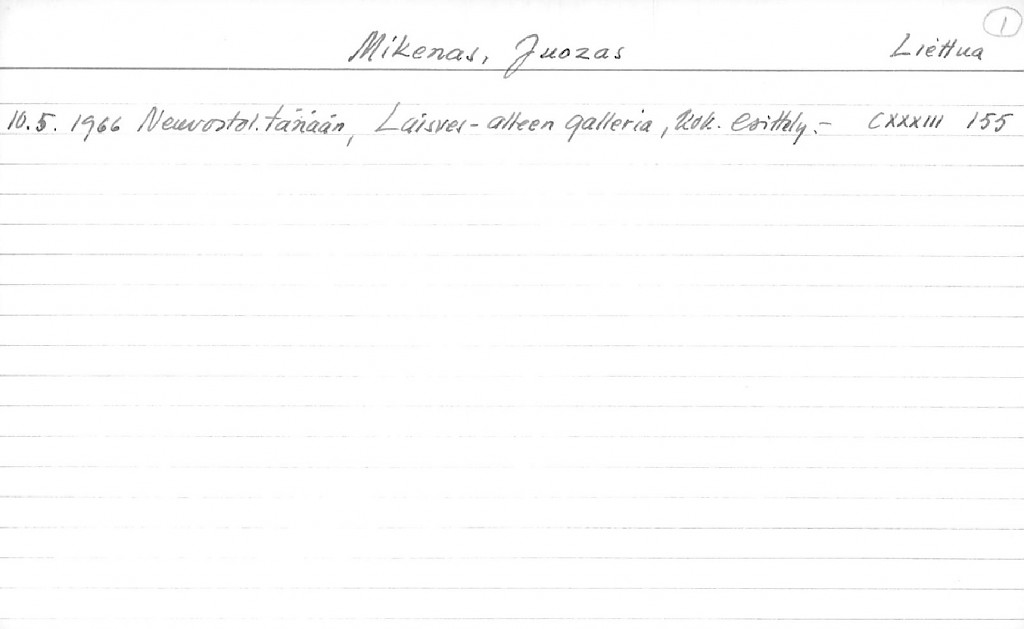 1
Mikenas, Juozas Liettua
10.5. 1966 Neuvostol. tänään, Laisves-alleen galleria, kok. esittely.- CXXXIII 155